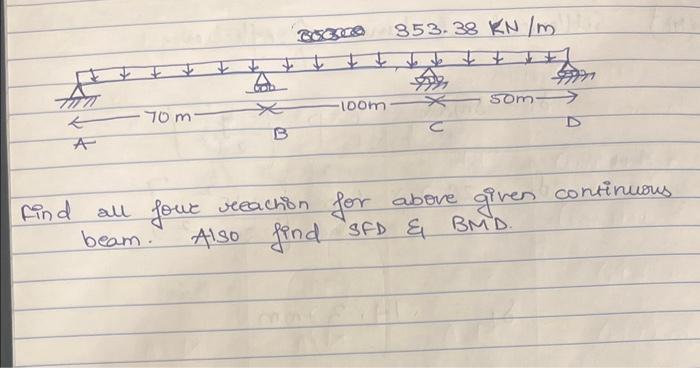 353.38 KN/m
70m 100m 50m
A B C D
Find all four reaction for above given continuous
beam. Also find SFD & BMD.